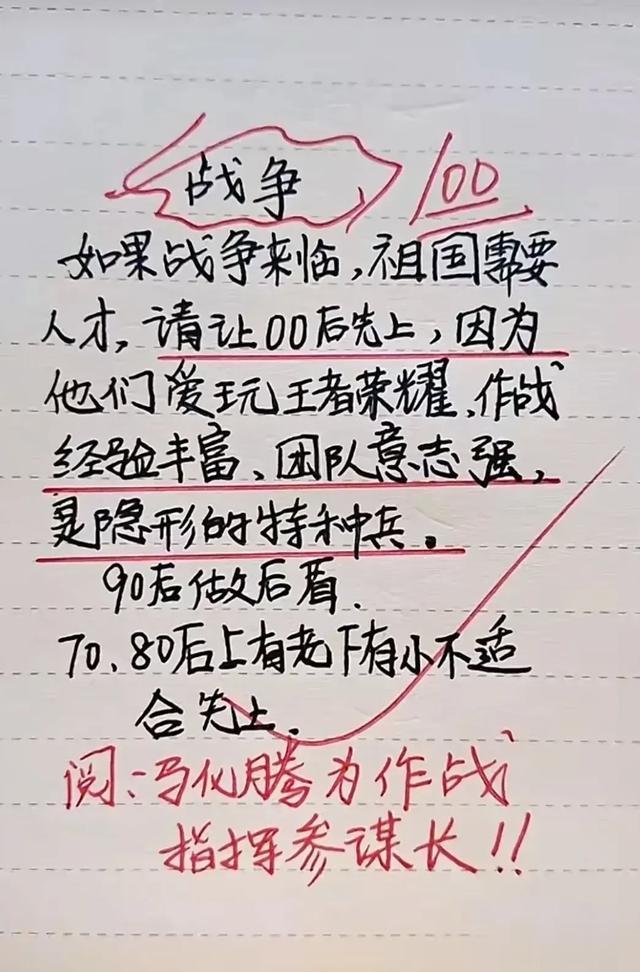 战争
100
如果战争来临,祖国需要
人才,请让00后先上,因为
他们爱玩王者荣耀、作战
经验丰富、团队意志强,
是隐形的特种兵。
90后做后盾.
70、80后上有老下有小不适
合先上.
阅:马化腾为作战
指挥参谋长!!